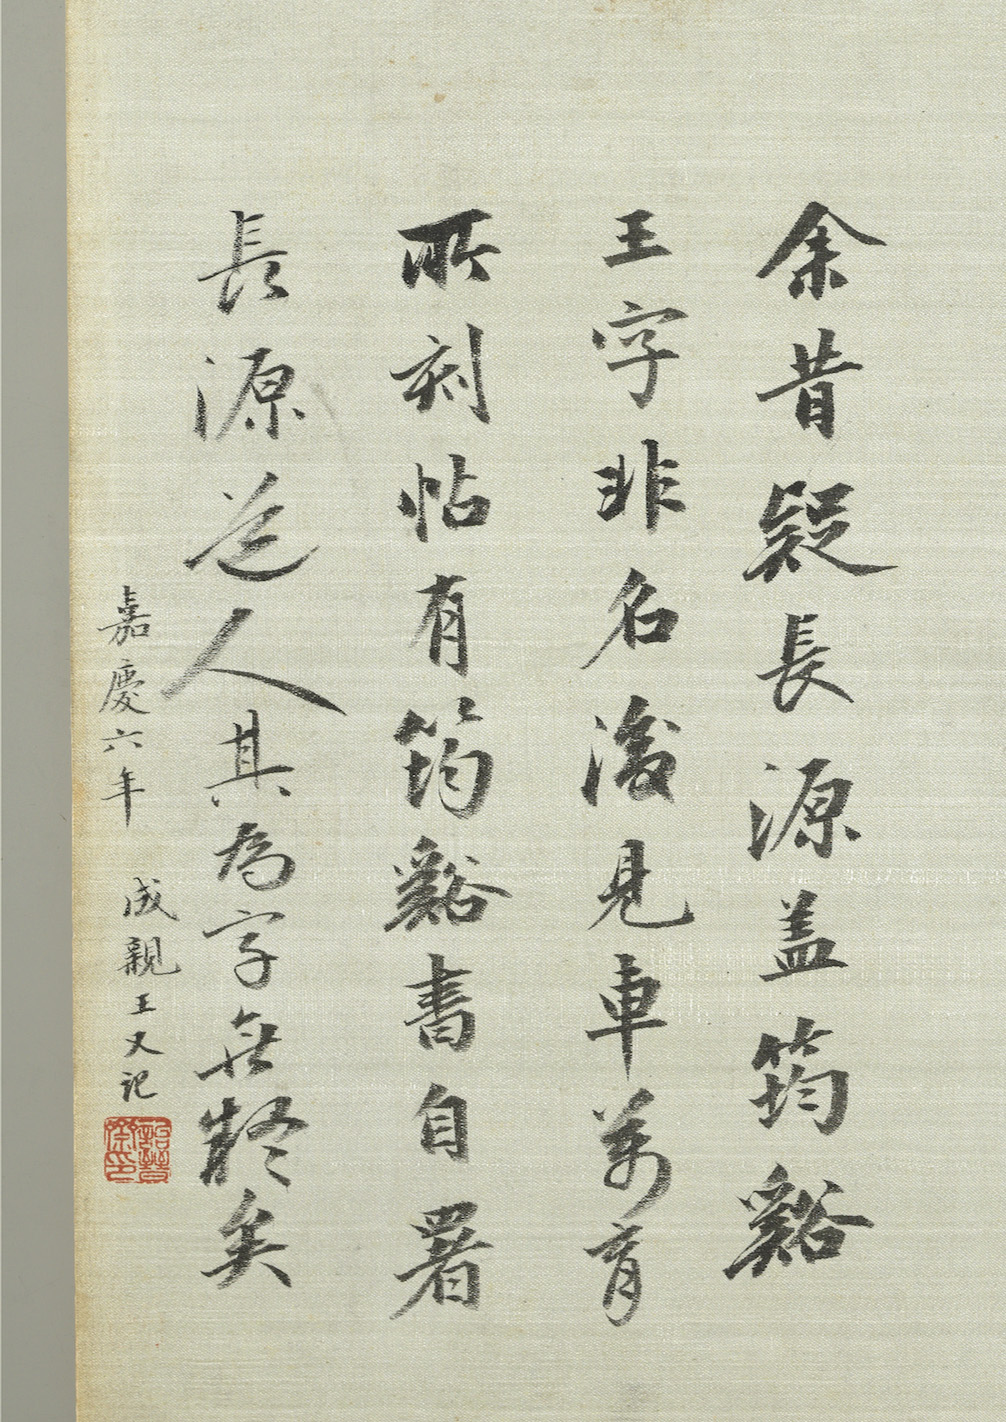 余昔疑長源盖筠谿
王字非名後見車萬育
所刻帖有筠谿書自署
長源道人其為字無疑矣
嘉慶六年 成親王又記
詒晉齋印